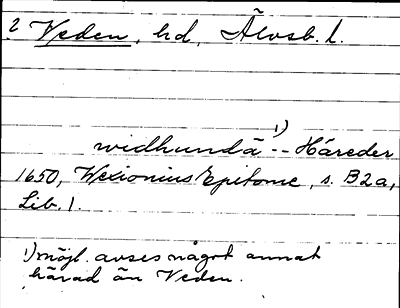 ? Veden, hd, Älvsb. l.
widhundä ¹) -- Häreder
1650, Wexionius Epitome, s. B2a,
Lib. 1.
1) möjl. avses något annat
härad än Veden.